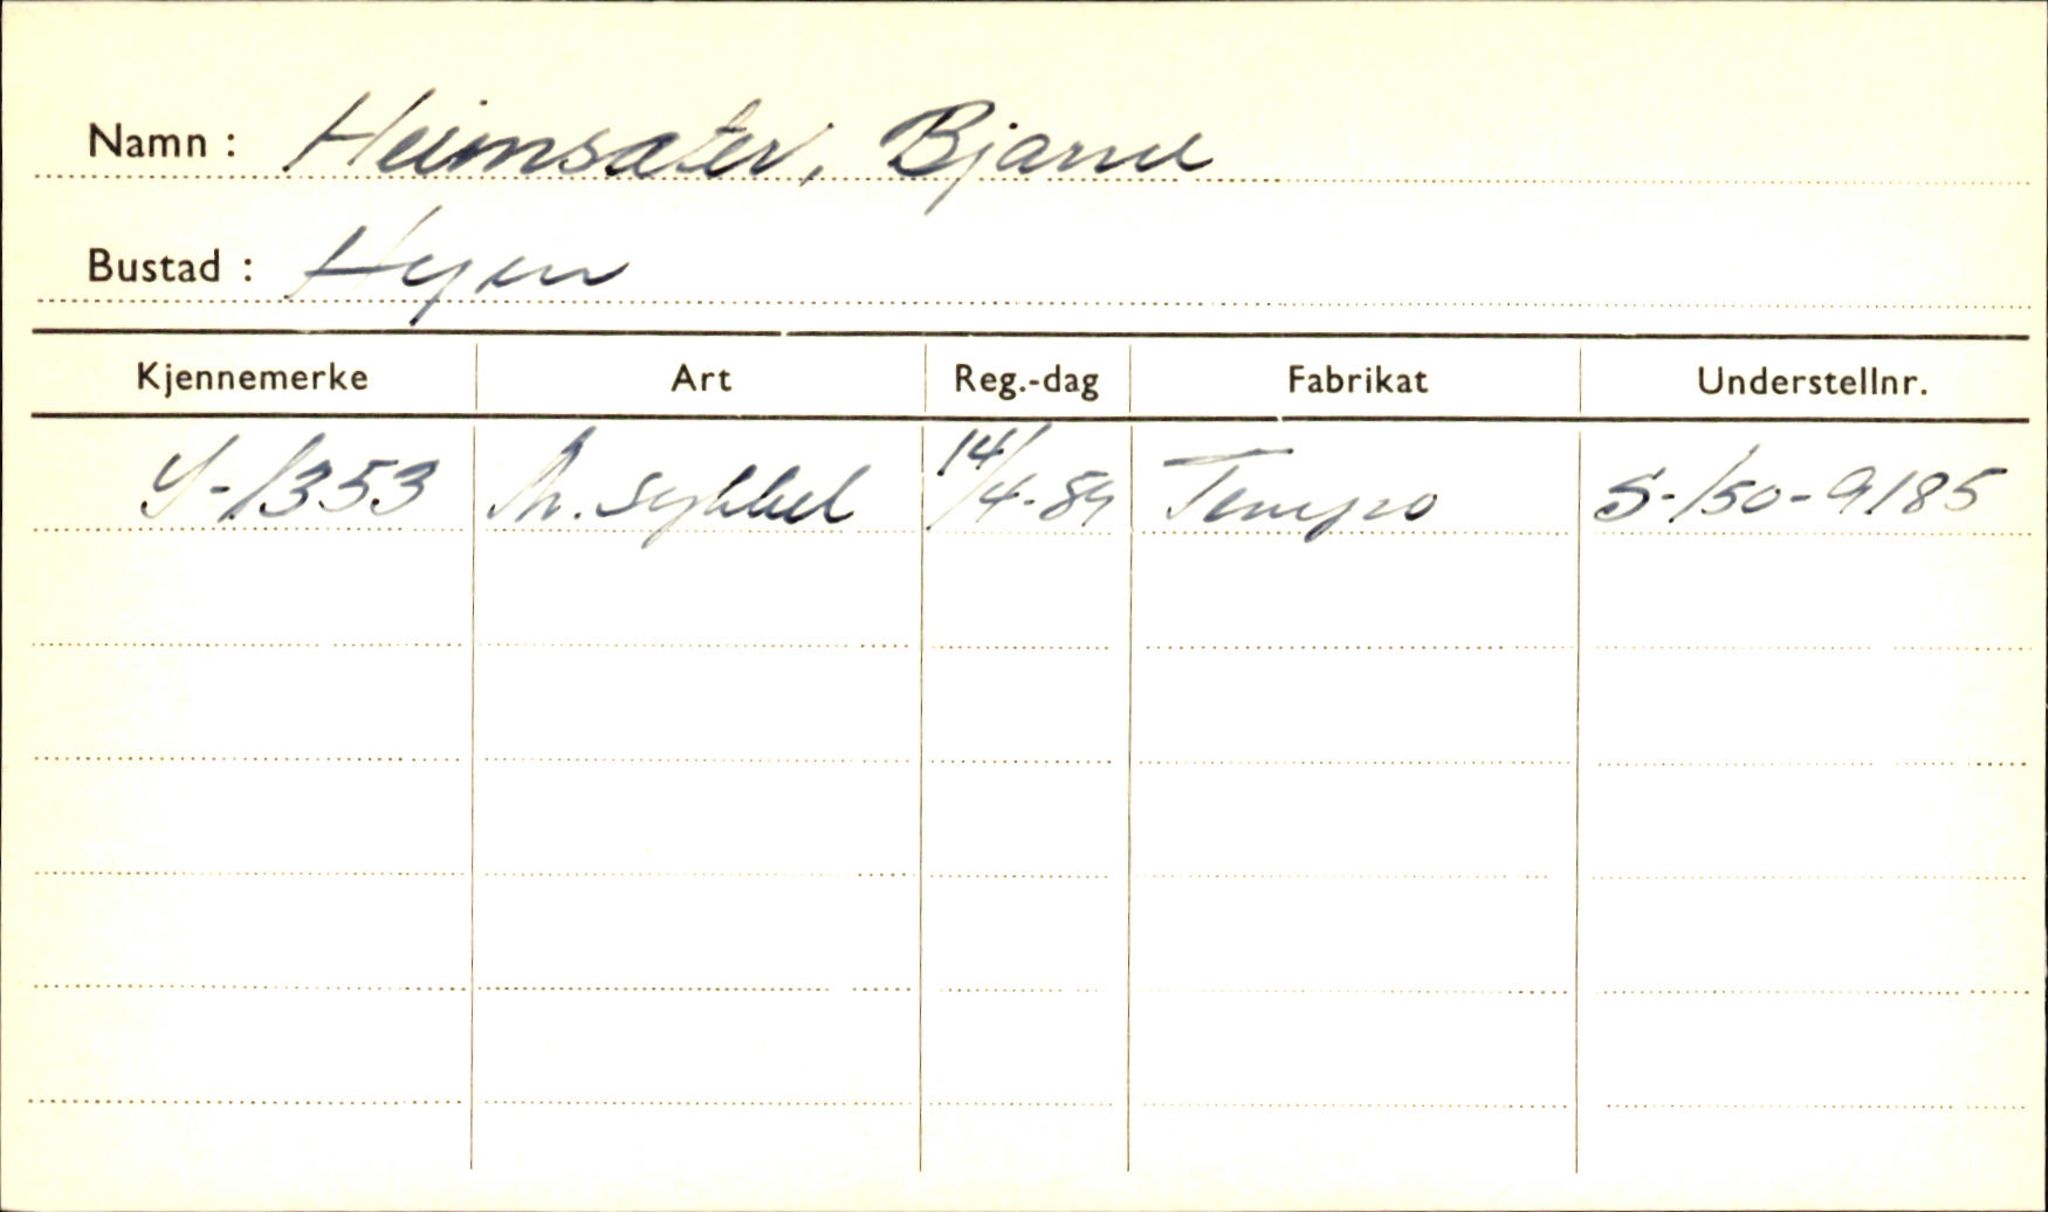 Namn : Heimsæter, Bjarne
Bustad : Hyen
Kjennemerke Art Reg.-dag Fabrikat Understellnr.
S-1353 M. sykkel 14/4-59 Tempo S-150-9185